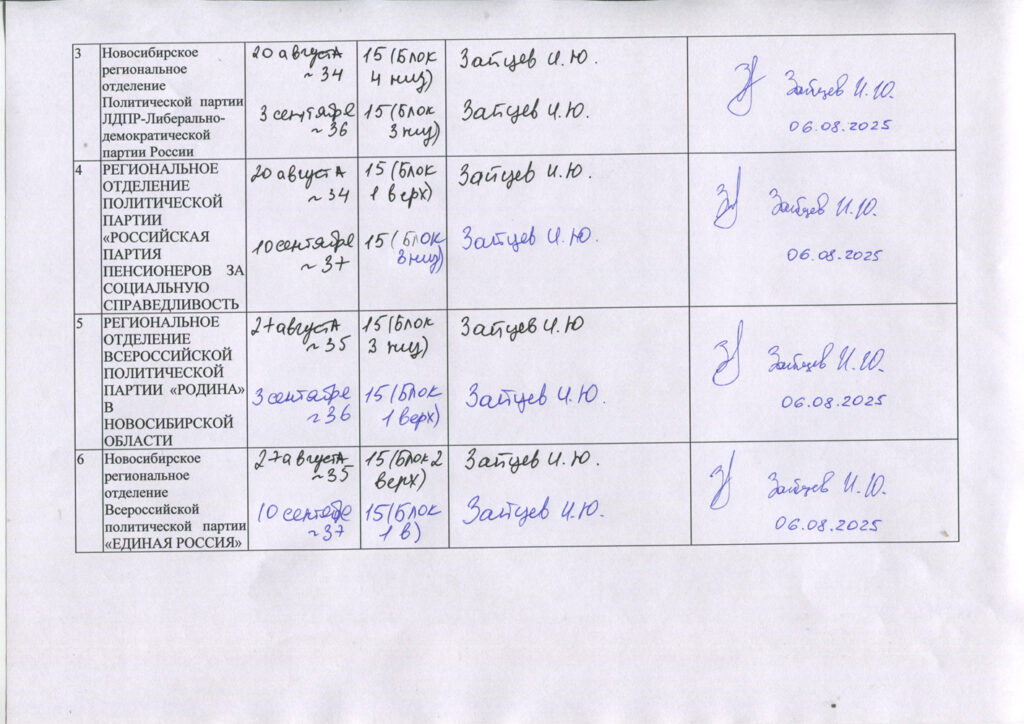 3
Новосибирское
региональное
отделение
Политической партии
ЛДПР-Либерально-
демократической
партии России
20 августа
~ 34
15 (Блок
4 низ)
Зайцев И.Ю.
3 сентября
~ 36
15 (Блок
3 низ)
Зайцев И.Ю.
Зайцев И.Ю.
06.08.2025
4
РЕГИОНАЛЬНОЕ
ОТДЕЛЕНИЕ
ПОЛИТИЧЕСКОЙ
ПАРТИИ
«РОССИЙСКАЯ
ПАРТИЯ
ПЕНСИОНЕРОВ ЗА
СОЦИАЛЬНУЮ
СПРАВЕДЛИВОСТЬ
20 августа
~ 34
15 (Блок
1 верх)
Зайцев И.Ю.
10 сентября
~ 37
15 (Блок
3 низ)
Зайцев И.Ю.
Зайцев И.Ю.
06.08.2025
5
РЕГИОНАЛЬНОЕ
ОТДЕЛЕНИЕ
ВСЕРОССИЙСКОЙ
ПОЛИТИЧЕСКОЙ
ПАРТИИ «РОДИНА»
В
НОВОСИБИРСКОЙ
ОБЛАСТИ
27 августа
~ 35
15 (Блок
3 низ)
Зайцев И.Ю
3 сентября
~ 36
15 (Блок
1 верх)
Зайцев И.Ю.
Зайцев И.Ю.
06.08.2025
6
Новосибирское
региональное
отделение
Всероссийской
политической партии
«ЕДИНАЯ РОССИЯ»
27 августа
~ 35
15 (Блок 2
верх)
Зайцев И.Ю.
10 сентября
~ 37
15 (Блок
1 в)
Зайцев И.Ю.
Зайцев И.Ю.
06.08.2025